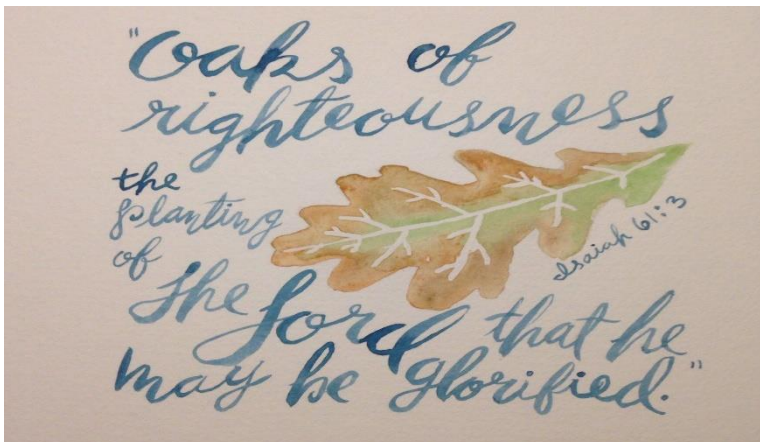 "Oaks of
righteousness
the
planting
of
the Lord that he
may be glorified."
Isaiah 61:3